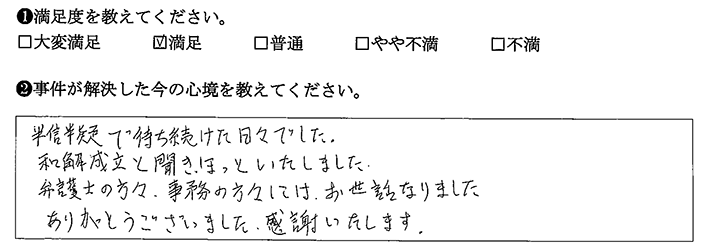 ❶満足度を教えてください。
□大変満足 ☑満足 □普通 □やや不満 □不満
❷事件が解決した今の心境を教えてください。
半信半疑で待ち続けた日々でした。
和解成立と聞きほっといたしました。
弁護士の方々、事務の方々には、お世話なりました
ありがとうございました、感謝いたします。